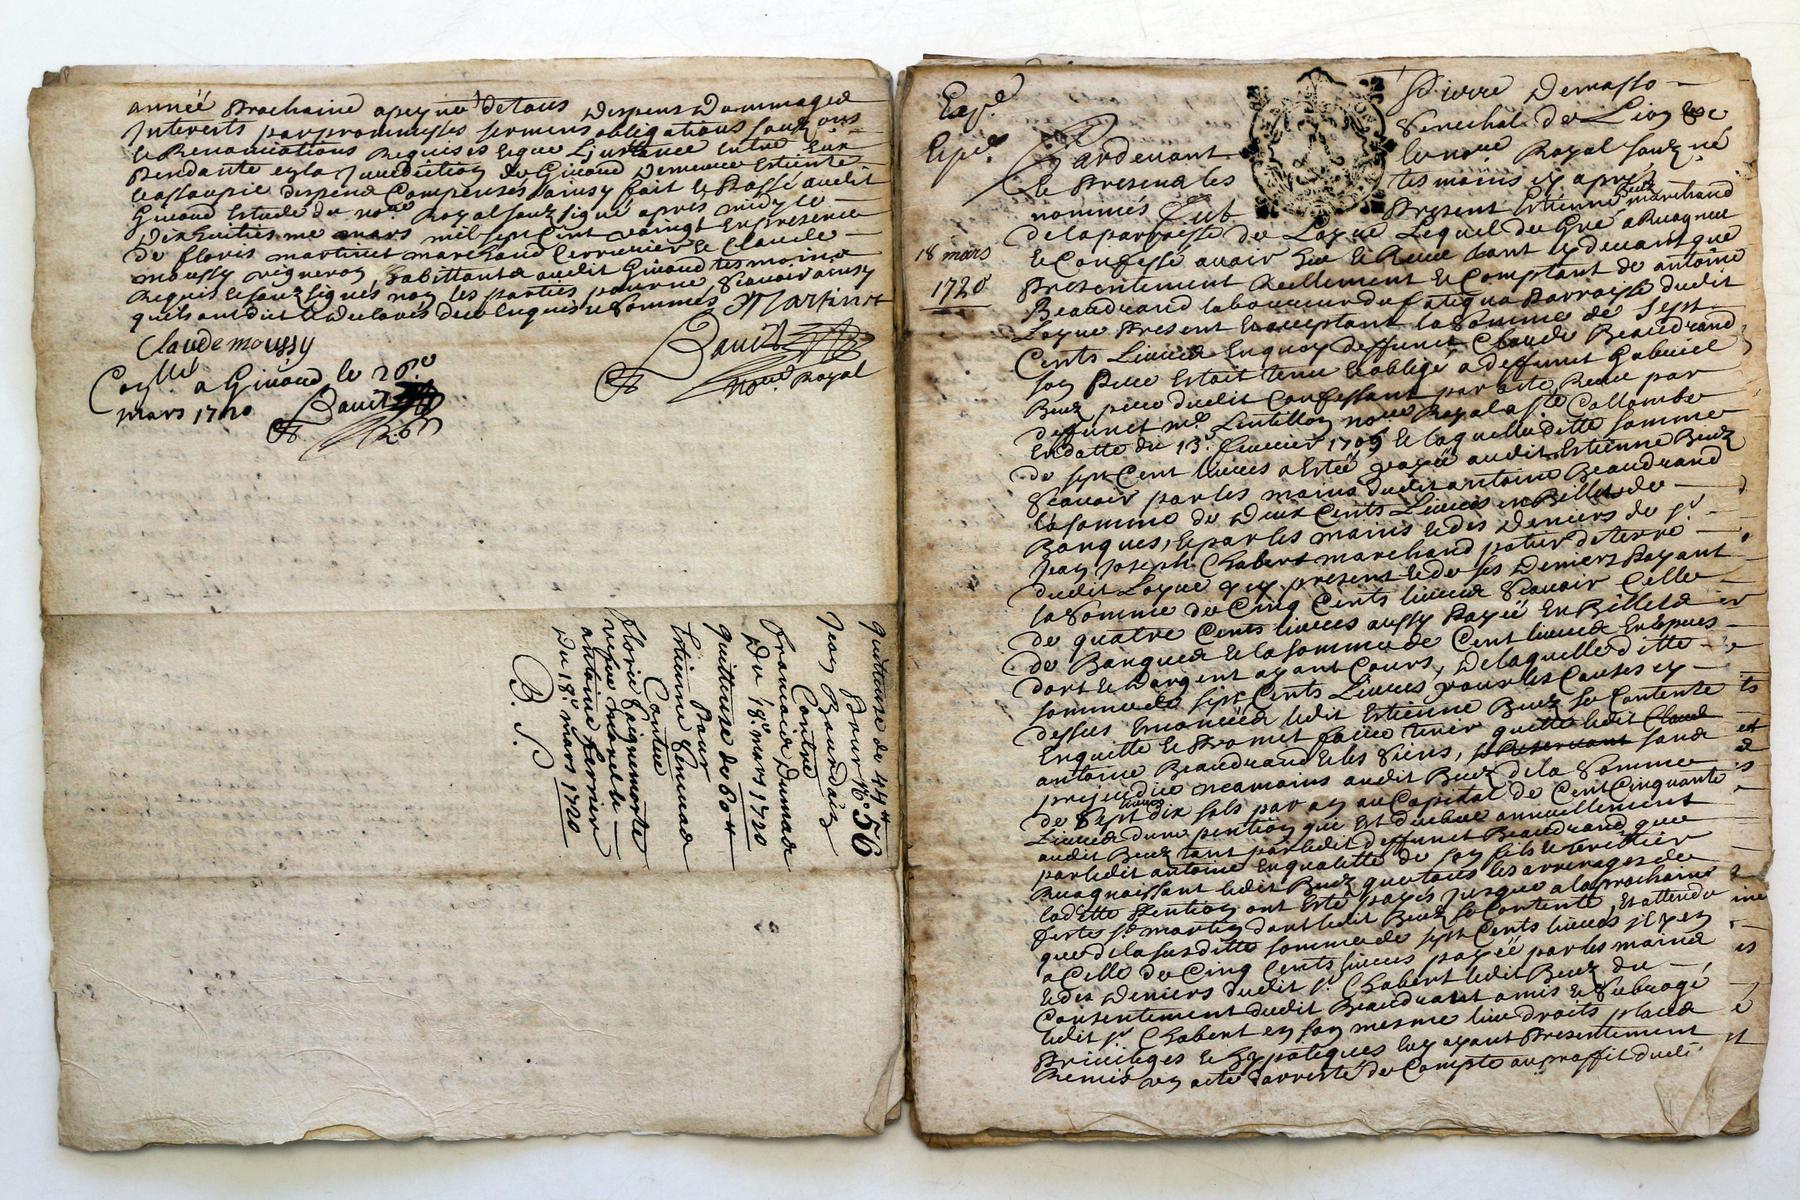 année prochaine a peyne de tous despens dommages
Interests par prommesses sermens obligations soubz
et Renonciations Requises
pendante en la Jurediction de Givord demeure Esteinte
et assoupie despens Compenses ainsy fait et Passé audit
Givord Estude du nore Royal soubsigné apres midy le
Dix huitiesme mars mil sept cent vaingt En presence
de floris martinet marchand et Claude
moussy vigneron habittants audit Givord tesmoins
Requis et soubsignés non les parties pour ne scavoir ainsy
quils ont dit et declarés deub enquis et sommes Martinet
Claude moussy
Bauit
nore Royal
a Givord le 26e
mars 1720
Bauit
quittance de 44tt
Pour No 56
Jean
Contre
francois Dumas
Du 18e mars 1720
quittance de 60tt
Pour
Estienne
Contre
florie
vefve
antoine ferrier
Du 18e mars 1720
B. S.
Exp.e
Exp.e
18 mars
1720
Pierre Demasso
Senechal de Lion &c
Pardevant
le nore Royal soubzné
Et Presens les
tesmoins cy apres
nommés fut
Present Estienne Buez marchand
de la parroisse de Loyre Lequel de Gré a Recognu
et Confessé avoir Eu et Receu tant cy devant que
Presentement Reellement et Comptant de antoine
Beaudrand laboureur du Parroisse dudit
Loyre Present et acceptant la Somme de Sept
Cents Livres En quoy deffunct Claude Beaudrand
son Pere Estoit tenu et obligé a deffunct Gabriel
Buez pere dudit Confessant par acte Receu par
deffunct me Lentillon nore Royal a Ste Collombe
En datte du 13e feuvrier 1709 et laquelle ditte somme
de sept Cent livres a Estée payée audit Estienne Buez
Scavoir par les mains dudit antoine Beaudrand
la somme de Deux Cents Livres en Billets de
Banques, et par les mains et des Deniers de sr
Jean Joseph Chabert marchand potier de terre
dudit Loyre cy present et de ses Deniers Payant
la Somme de Cinq Cents livres Scavoir Celle
de quatre Cents livres aussy Payée En Billets
de Banques et la somme de Cent livres En espues
d'or et d'argent ayant Cours, De laquelle ditte
somme de sept Cents Livres pour les Causes cy
dessus Enoncées ledit Estienne Buez se Contente
En quitte et Promet faire tenir quitte ledit Claud
antoine Beaudrand et les siens, se Reservant sans
prejudice neamoins audit Buez de la Somme
de Sept livres dix sols par an au Capital de Cent Cinquante
Livres d'une pention qui Est deube annuellement
audit Buez tant par ledit deffunct Beaudrand que
par ledit antoine En qualitté de son fils et heritier
Recognoissant ledit Buez que tous les arrerages de
laditte Pention ont Esté payés Jusque a la prochaine
feste st martin dont ledit Buez se Contente, Et attendu
que de la susditte somme de sept Cents livres il y en
a Celle de Cinq Cents livres payée par les mains
et des Deniers dudit sr Chabert ledit Buez du
Consentement dudit Beaudrant a mis et Subrogé
ledit sr Chabert en son mesme lieu droits place
Privileges et hypoteques luy ayant Presentement
Remis un acte d'arresté de Compte au proffit dudit